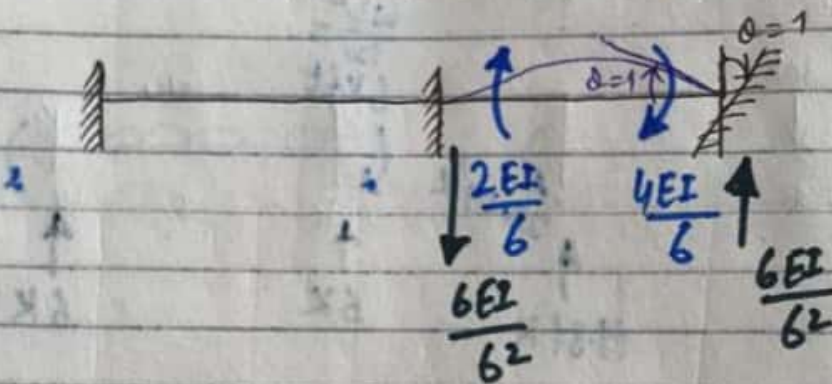 θ=1
θ=1
2EI/6
4EI/6
6EI/6²
6EI/6²